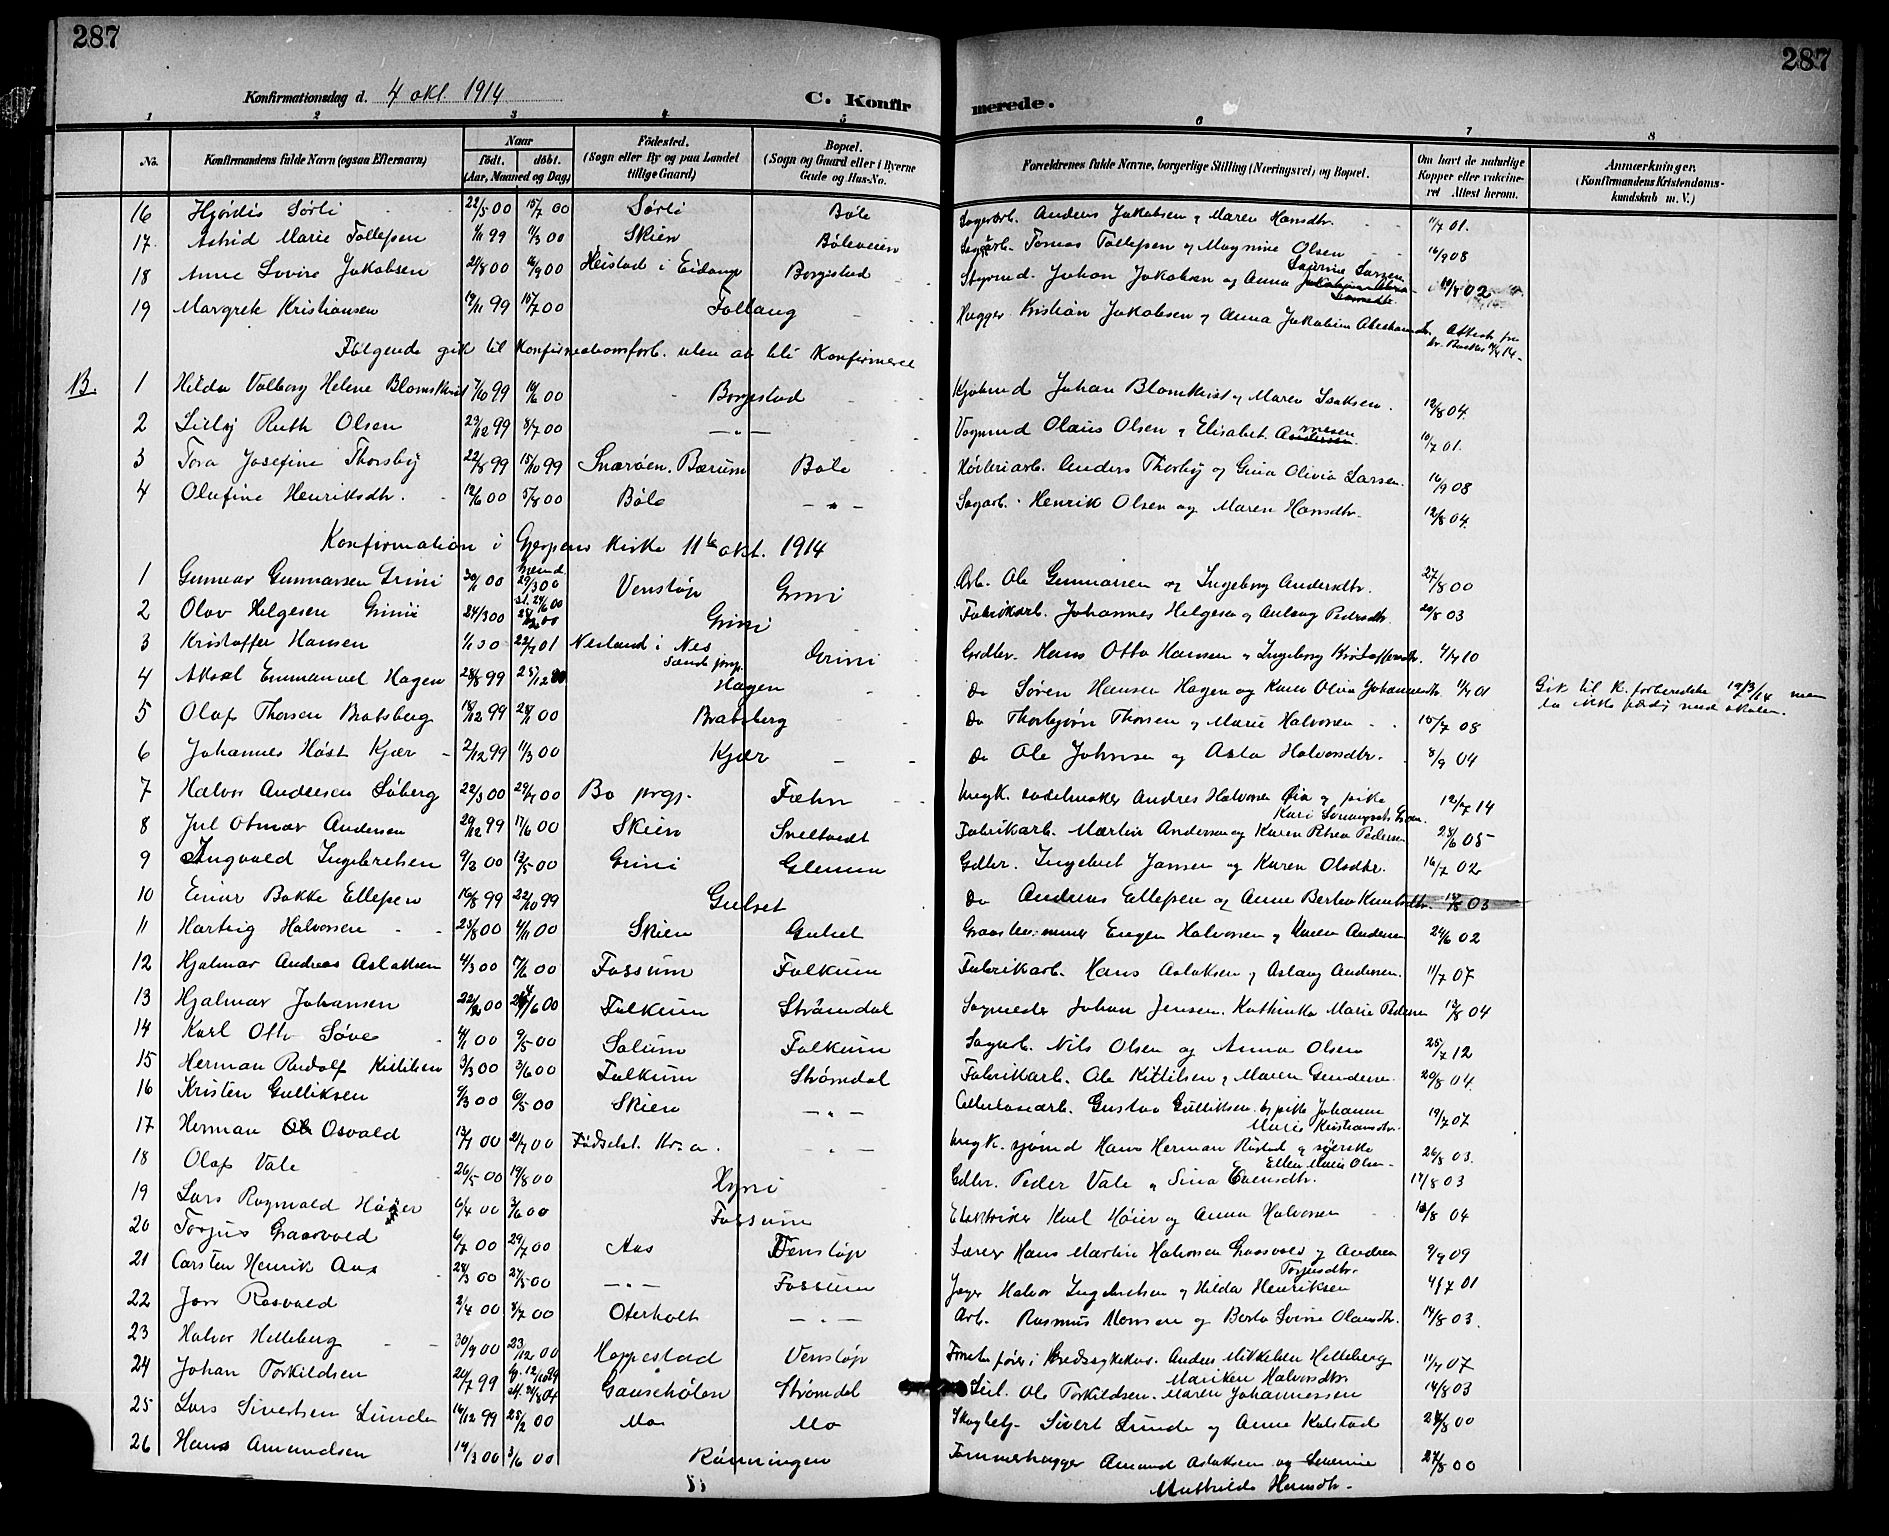 287
287
Konfirmationsdag d. 4 okt. 1914
C. Konfirmerede.
1 2 3 4 5 6 7 8
No.
Konfirmandens fulde Navn (ogsaa Efternavn)
Naar
født. døbt.
(Aar, Maaned og Dag)
Fødested.
(Sogn eller By og paa Landet tillige Gaard)
Bopæl.
(Sogn og Gaard eller i Byerne Gade og Hus-No.
Forældrenes fulde Navne, borgerlige Stilling (Næringsvei) og Bopæl.
Om havt de naturlige Kopper eller vaccineret Attest herom.
Anmærkninger.
(Konfirmandens Kristendomskundskab m. V.)
16 Hjördis Sörli 22/5 00 15/7 00 Sörli Böle Sagarb. Anders Jakobsen og Maren Hansdtr. 1/7 01.
17. Astrid Marie Tollefsen 11/3 00 Skien Böleveien Tomas Tollefsen og Magnine Olsen 16/9 08
18 Anne Lovise Jakobsen 24/8 00 16/9 00 Heistad i Eidanger Borgestad Styrmd. Johan Jakobsen og Anna Larsen 02
19 Margrete Kristiansen 19/11 99 15/7 00 Follaug Hugger Kristian Jakobsen og Anna Jakobine Attest fra dr. 14
Fölgende gik til Konfirmationsforb. uten at bli Konfirmeret
B. 1 Hilda Valborg Helene Blomkvist 7/10 99 00 Borgestad Kjöbmd Johan Blomkvist og Maren Isaksen. 12/8 04.
2 Lilly Ruth Olsen 23/12 99 8/7 00 — " — Vognmd Olaus Olsen og Elisabet 10/7 01.
3 Tora Josefine Thorsby 22/8 99 15/10 99 Snaröen, Bærum Böle Anders Thorsby og Gina Olivia Larsen. 16/9 08
4 Olufine Henriksdtr. 12/6 00 5/8 00 Böle — " — Sagarb. Henrik Olsen og Maren Hansdtr. 12/8 04.
Konfirmation i Gjerpens kirke 11te okt. 1914
1 Gunnar Gunnarsen Grini 30/1 00 Venstöp Grini Arb. Ole Gunnarsen og Ingeborg Andersdtr. 27/8 00
2 Olav Helgesen Grini 24/3 00 Grini Fabrikarb. Johannes Helgesen og Aslaug Pedersdtr. 20/8 03
3 Kristoffer Hansen 22/7 01 Nesland i Nes Grini Grdbr. Hans Otto Hansen og Ingeborg Kristoffersdtr. 4/7 10
4 Aksel Emmanuel Hagen 28/8 99 25/12 Hagen Do Sören Hansen Hagen og Karen Olava Johannesdtr. 11/7 01 Gik til K. forberedelse 14 men ble ikke færdig med skolen.
5 Olaf Thorsen Bratsberg 18/12 99 28/1 00 Bratsberg Do Thorbjørn Thorsen og Marie Halvorsen 15/7 08
6 Johannes Höst Kjær 2/12 99 11/3 00 Kjær Do Ole Johnsen og Asta Halvorsdtr. 8/9 04
7 Halvor Andresen Söberg 22/3 00 29/7 00 Bö prgj. Fæhn Ungk. sadelmaker Andres Halvorsen Öia og pike Kari 12/7 14
8 Jul Otmar Andersen 29/12 99 17/6 00 Skien Sneltvedt Fabrikarb. Martin Andersen og Karen Petrea Pedersen 28/6 05
9 Ingvald Ingebretsen 9/3 00 13/5 00 Grini Glenna Gdbr. Ingebret Jansen og Karen Olsdtr. 16/7 02
10 Einar Bakke Ellefsen 16/8 99 22/10 99 Gulset Do Andreas Ellefsen og Anne Bertea Knutsdtr. 12/8 03
11 Hartvig Halvorsen 25/8 00 4/11 00 Skien Gulset Eugen Halvorsen og Karen Andersen 24/6 02
12 Hjalmar Andreas Aslaksen 4/3 00 7/6 00 Fossum Falkum Fabrikarb. Hans Aslaksen og Aslaug Andersen. 11/7 07
13 Hjalmar Johansen 00 00 Falkum Strömdal Sagmester Johan Jensen. Kathinka Marie Pedersen 12/8 04
14 Karl Otto Söve 4/1 00 9/5 00 Solum Falkum Sagarb. Nils Olsen og Anna Olsen 25/7 12
15 Herman Rudolf Kittilsen 3/3 00 3/6 00 Falkum Strömdal Fabrikarb. Ole Kittilsen og Maren Gundersen. 20/8 04.
16 Kristen Gulliksen 9/3 00 6/5 00 Skien — " — Cellulosearb. Gustav Gulliksen og pike Johanne Marie Kristiansdtr. 19/7 07
17 Herman Osvald 13/1 00 2/7 00 Födselst. Kr.a. — " — Ungk. sjömd Hans Herman Rustad og syerske Ellen Marie Olsen 26/8 03.
18 Olaf Vale 26/5 00 19/8 00 Hyni Gdbr. Peder Vale og Sina Evensdtr. 14/8 03
19 Lars Ragnvald Höier 6/4 00 3/6 00 Fossum Elektriker Karl Höier og Anna Halvorsen 12/8 04
20 Torjus Graasvold 6/7 00 29/7 00 Aas Venstöp Lærer Hans Martin Halvorsen Graasvold og Andrea Torjusdtr. 9/9 09
21 Carsten Henrik Aas 28/3 00 27/5 00 — " — Fossum Jæger Halvor Ingebretsen og Hilda Henriksen 4/7 01
22 Jon Rosvald 2/4 00 8/7 00 Oterholt — " — Arb. Rasmus Monsen og Berta Lovise Olausdtr. 14/8 03.
23 Halvor Helleberg 30/9 00 23/12 00 Hoppestad Venstöp Forretn.förer i Kredssykekas. Anders Mikkelsen Helleberg Mariken Halvorsdtr 11/7 07
24 Johan Torkildsen 26/7 99 Gauseholen Strömdal Ole Torkildsen. Maren Johannessen 14/8 03
25 Lars Sivertsen Lunde 16/12 99 25/2 00 Mo Mo Skogbetj. Sivert Lunde og Anne Kolstad 28/8 00
26 Hans Amundsen 14/3 00 3/6 00 Rönningen Tømmerhugger Amund Aslaksen og Mathilde Hansdtr. 27/8 00